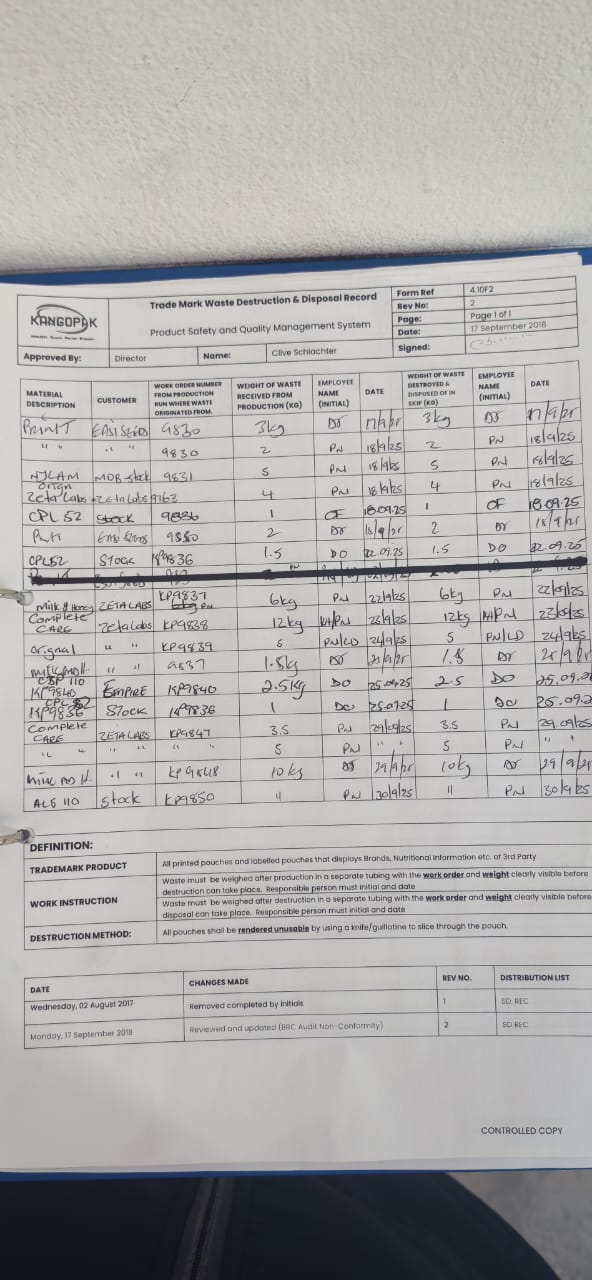 KANGOPAK
Trade Mark Waste Destruction & Disposal Record
Product Safety and Quality Management System
Form Ref 4.10F2
Rev No: 2
Page: Page 1 of 1
Date: 17 September 2018
Approved By: Director Name: Clive Schlachter Signed:
MATERIAL DESCRIPTION CUSTOMER WORK ORDER NUMBER FROM PRODUCTION RUN WHERE WASTE ORIGINATED FROM. WEIGHT OF WASTE RECEIVED FROM PRODUCTION (KG) EMPLOYEE NAME (INITIAL) DATE WEIGHT OF WASTE DESTROYED & DISPOSED OF IN SKIP (KG) EMPLOYEE NAME (INITIAL) DATE
9830 3kg 3kg
" " " " 9830 2 PN 18/9/25 2 PN 18/9/25
stock 9831 5 PN 18/9/25 5 PN 18/9/25
Zeta Labs Zeta Labs 9763 4 PN 18/9/25 4 PN 18/9/25
CPL 52 Stock 9836 1 OF 18.09.25 1 OF 18.09.25
2 2
CPL52 STOCK KP9836 1.5 DO 22.09.25 1.5 DO 22.09.25
Milk & Honey ZETALABS KP9837 6kg PN 22/9/25 6kg PN 22/09/25
Complete CARE Zeta Labs KP9838 12kg 12kg
Original " " KP9839 5 PN/LD 24/9/25 5 PN/LD 24/9/25
" " 9837 1.8kg 1.8
CSP 110 KP9840 EMPIRE KP9840 2.5kg DO 25.09.25 2.5 DO 25.09.2
CPL 52 KP9836 Stock KP9836 1 DO 1 DO 25.09.2
Complete CARE ZETALABS KP9847 3.5 PN 29/09/25 3.5 PN 29.09/25
" " " " " " 5 PN " " 5 PN " "
" " KP9848 10kg 10kg
ALG 110 Stock KP9850 11 PN 30/9/25 11 PN 30/9/25
DEFINITION:
TRADEMARK PRODUCT All printed pouches and labelled pouches that displays Brands, Nutritional Information etc. of 3rd Party
WORK INSTRUCTION Waste must be weighed after production in a separate tubing with the work order and weight clearly visible before
destruction can take place. Responsible person must initial and date
Waste must be weighed after destruction in a separate tubing with the work order and weight clearly visible before
disposal can take place. Responsible person must initial and date
DESTRUCTION METHOD: All pouches shall be rendered unusable by using a knife/guillotine to slice through the pouch.
DATE CHANGES MADE REV NO. DISTRIBUTION LIST
Wednesday, 02 August 2017 Removed completed by initials 1 SD, REC
Monday, 17 September 2018 Reviewed and updated (BRC Audit Non-Conformity) 2 SD REC
CONTROLLED COPY